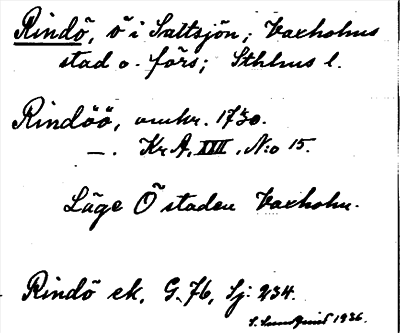 Rindö, ö i Saltsjön, Vaxholms
stad o. förs; Sthlms l.
Rindöö, omkr. 1730.
—. Kr A, XIII, N:o 15.
Läge Ö staden Vaxholm.
Rindö ek. G. 76, Sj: 234.
S. Lundquist 1936.